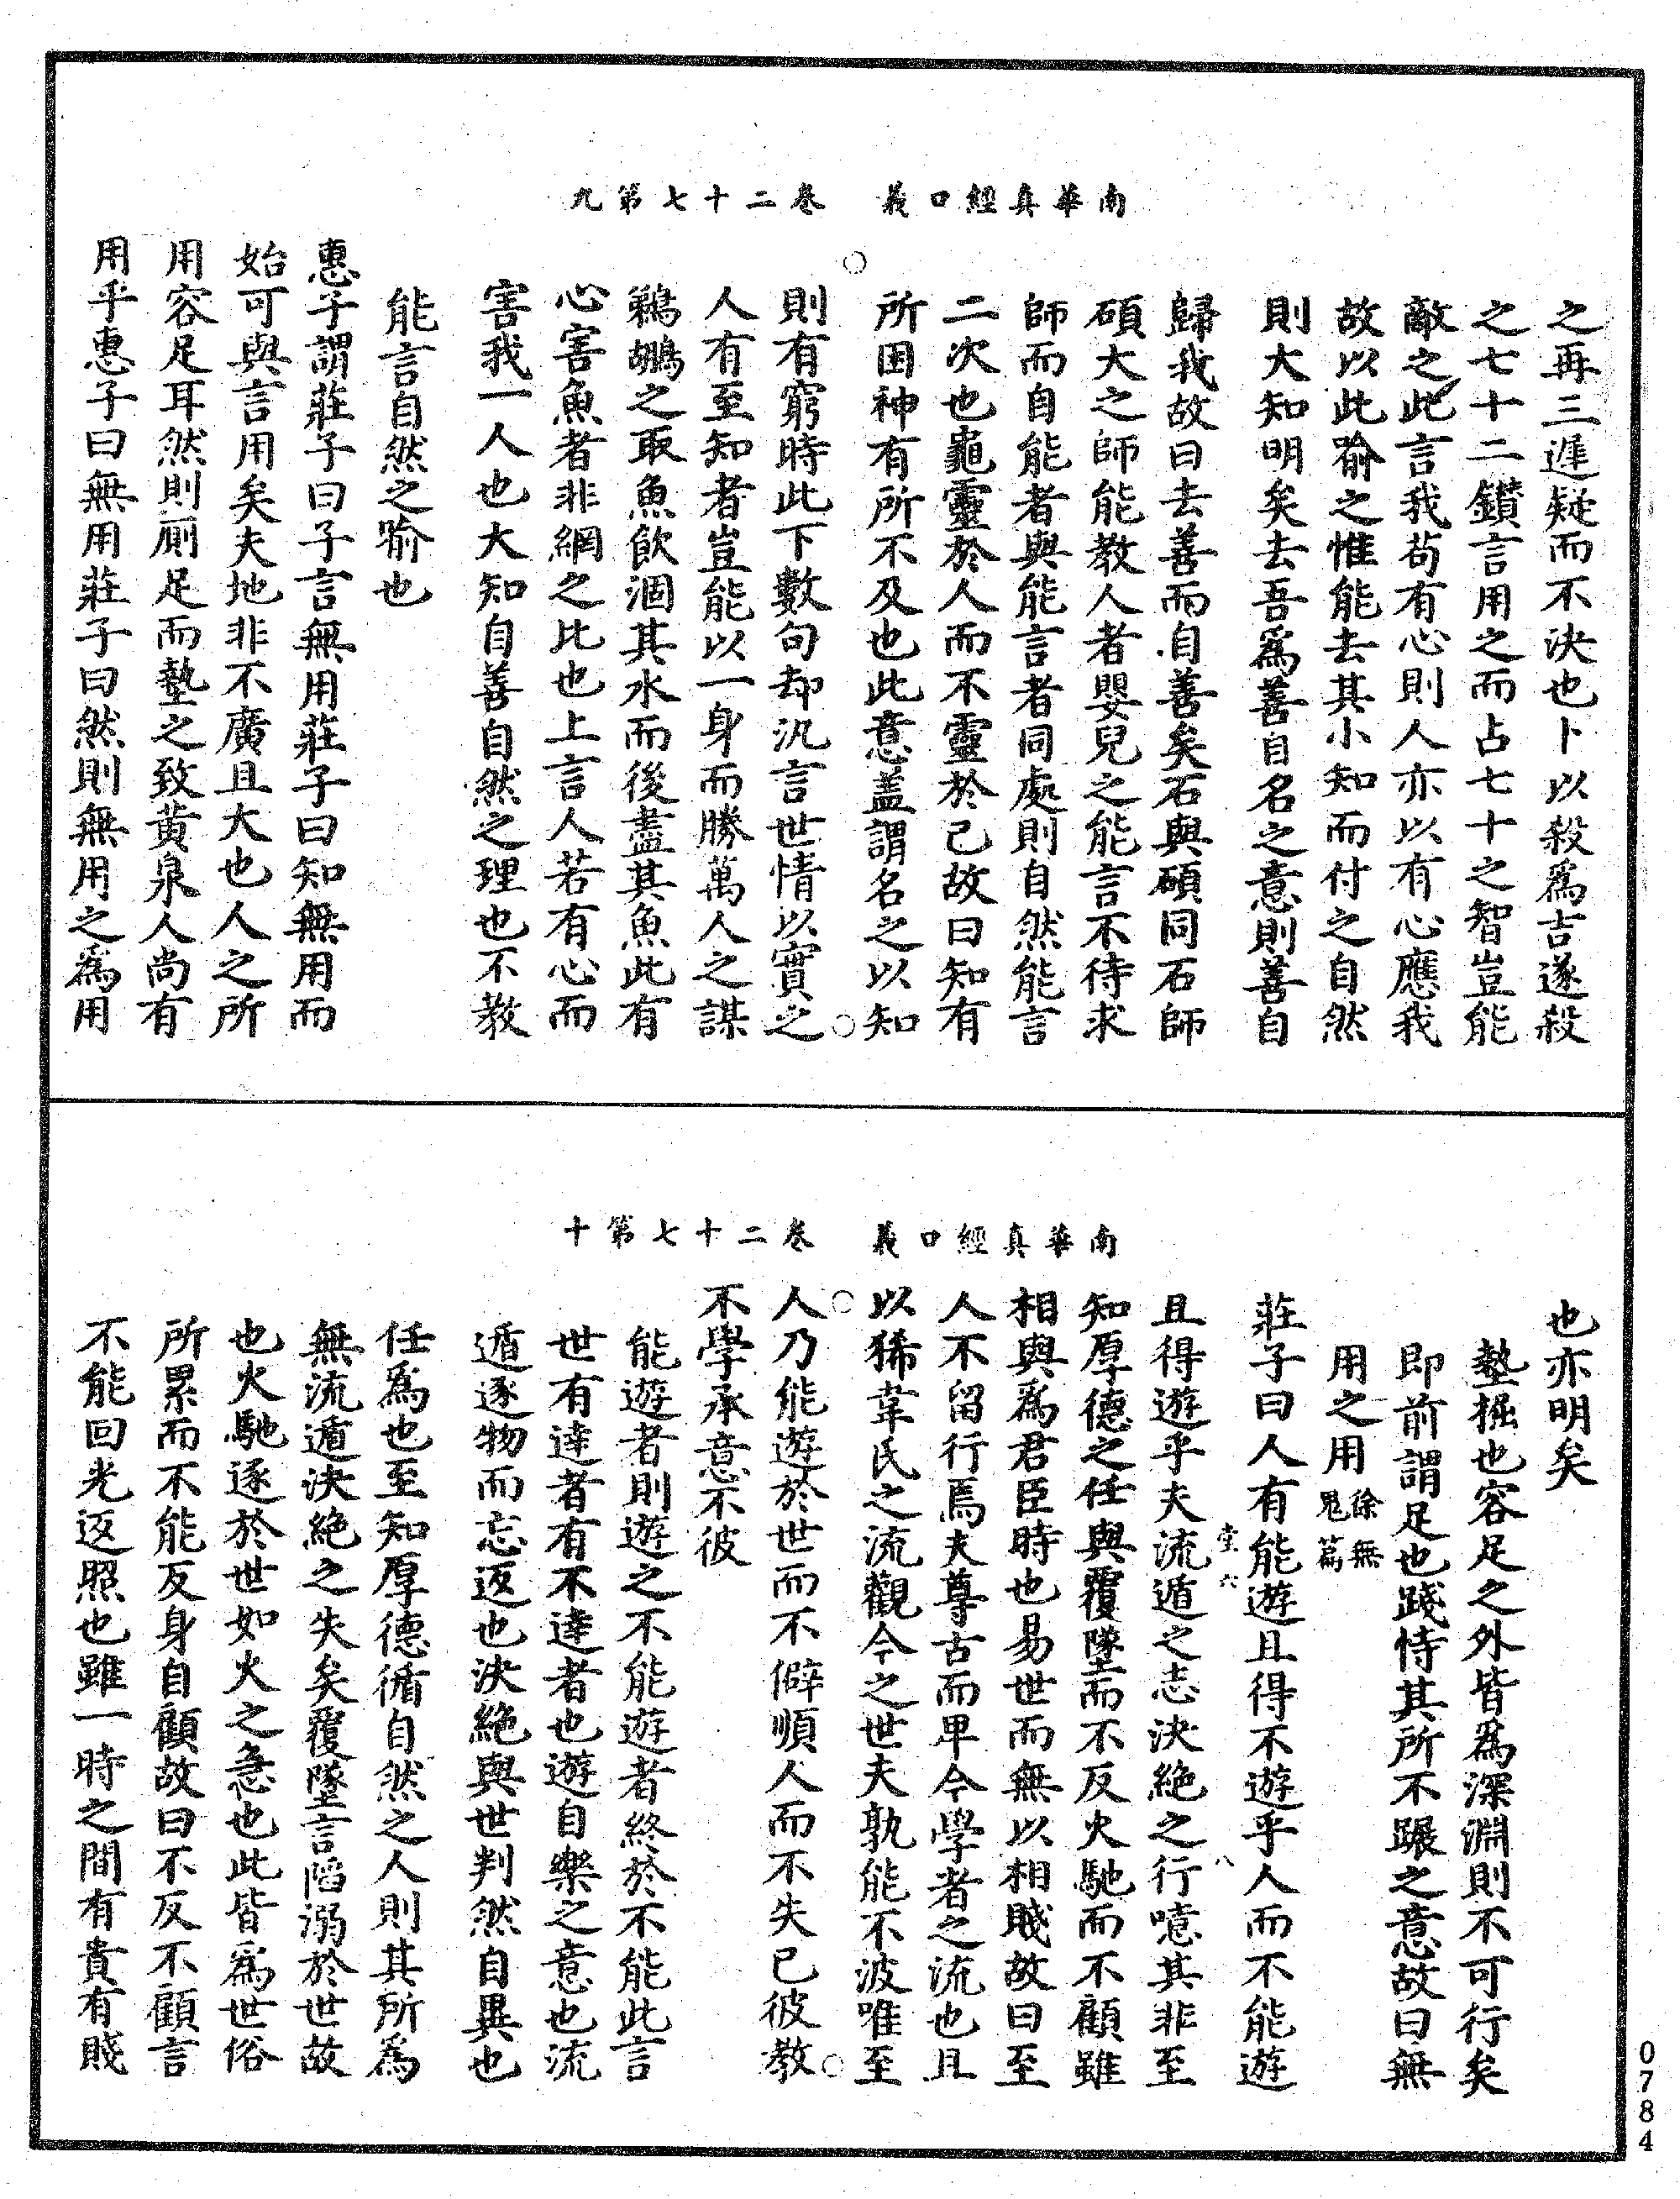 南華真經口義　卷二十七第九
之再三遲疑而不決也卜以殺爲吉遂殺
之七十二鑚言用之而占七十之智豈能
敵之此言我苟有心則人亦以有心應我
故以此喻之惟能去其小知而付之自然
則大知明矣去吾爲善自名之意則善自
歸我故曰去善而自善矣石與碩同石師
碩大之師能教人者嬰兒之能言不待求
師而自能者與能言者同處則自然能言
二次也龜靈於人而不靈於己故曰知有
所困神有所不及也此意盖謂名之以知
則有窮時此下數句却汎言世情以實之
人有至知者豈能以一身而勝萬人之謀
鵜鶘之取魚飲涸其水而後盡其魚此有
心害魚者非網之比也上言人若有心而
害我一人也大知自善自然之理也不教
能言自然之喻也
惠子謂莊子曰子言無用莊子曰知無用而
始可與言用矣夫地非不廣且大也人之所
用容足耳然則厠足而墊之致黄泉人尚有
用乎惠子曰無用莊子曰然則無用之爲用
南華真經口義　卷二十七第十
也亦明矣
墊掘也容足之外皆爲深淵則不可行矣
即前謂足也踐恃其所不蹍之意故曰無
用之用徐無鬼篇
莊子曰人有能遊且得不遊乎人而不能遊
堂六　八
且得遊乎夫流遁之志決絶之行噫其非至
知厚德之任與覆墜而不反火馳而不顧雖
相與爲君臣時也易世而無以相賤故曰至
人不留行焉夫尊古而卑今學者之流也且
以狶韋氏之流觀今之世夫孰能不波唯至
人乃能遊於世而不僻順人而不失己彼教
不學承意不彼
能遊者則遊之不能遊者終於不能此言
世有達者有不達者也遊自樂之意也流
遁逐物而忘返也決絶與世判然自異也
任爲也至知厚德循自然之人則其所爲
無流遁決絶之失矣覆墜言陷溺於世故
也火馳逐於世如火之急也此皆爲世俗
所累而不能反身自顧故曰不反不顧言
不能回光返照也雖一時之間有貴有賤
0784